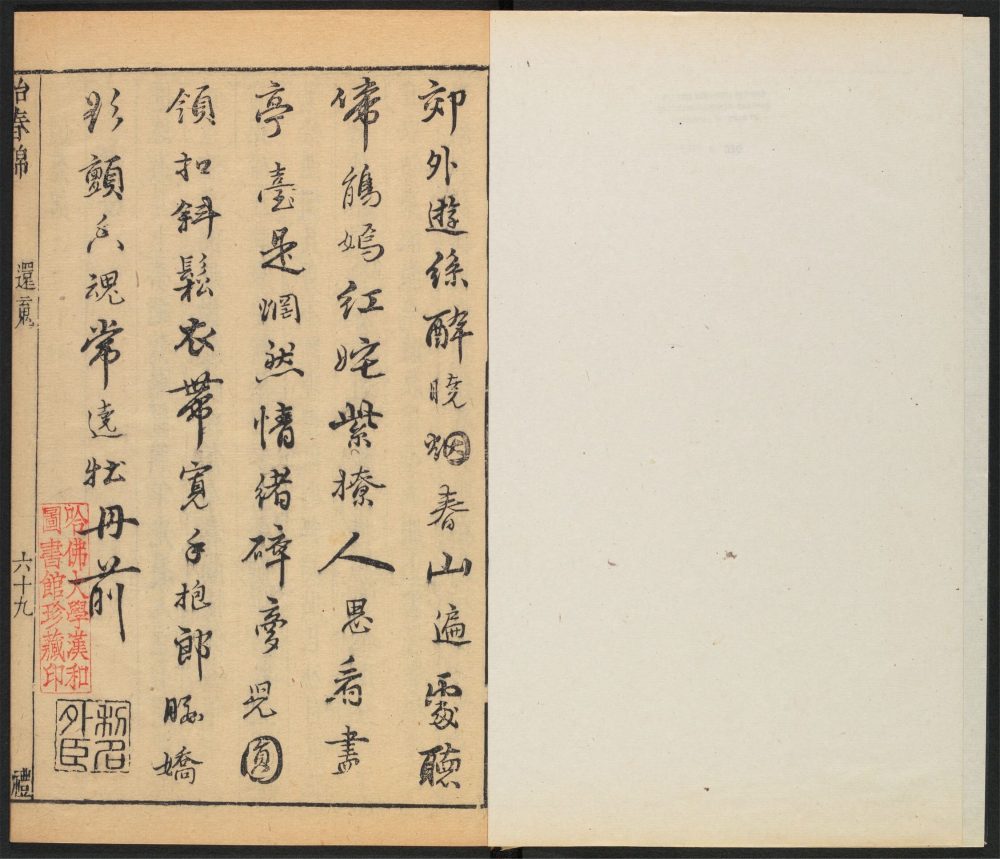 郊外遊絲醉曉烟春山遍處聽
啼鵑嫣紅姹紫撩人思看盡
亭臺是惘然情緒碎夢兒圓
領扣斜鬆衣帶寬手抱郎腰嬌
影顫香魂常遶牡丹前
哈佛大學漢和
圖書館珍藏印
外臣
怡春錦
還䰟
六十九
禮